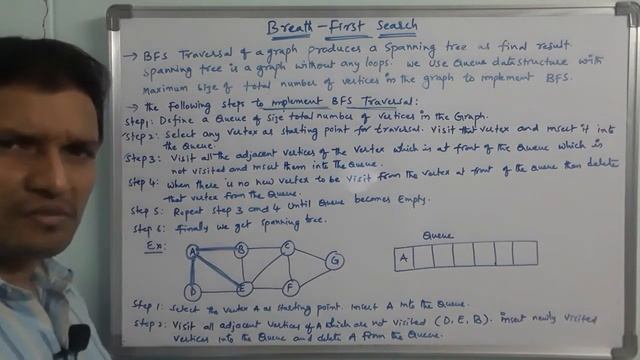 Breath-First Search
→ BFS Traversal of a graph produces a spanning tree as final result.
Spanning tree is a graph without any loops. We use Queue datastructure with
Maximum size of total number of vertices in the graph to implement BFS.
→ the following steps to implement BFS Traversal:
Step1: Define a Queue of size total number of vertices in the Graph.
Step2: Select any vertex as starting point for traversal. Visit that vertex and insert it into
the Queue.
Step3: Visit all the adjacent vertices of the vertex which is at front of the Queue which is
not visited and insert them into the Queue.
Step 4: When there is no new vertex to be visit from the vertex at front of the Queue then delete
that vertex from the Queue.
Step 5: Repeat step 3 and 4 until Queue becomes Empty.
Step 6: Finally we get spanning tree.
Ex:
Queue
A B C G
D E F
A
Step 1: Select the vertex A as starting point. Insert A into the Queue.
Step 2: Visit all adjacent vertices of A which are not visited (D, E, B). insert newly visited
vertices into the Queue and delete A from the Queue.